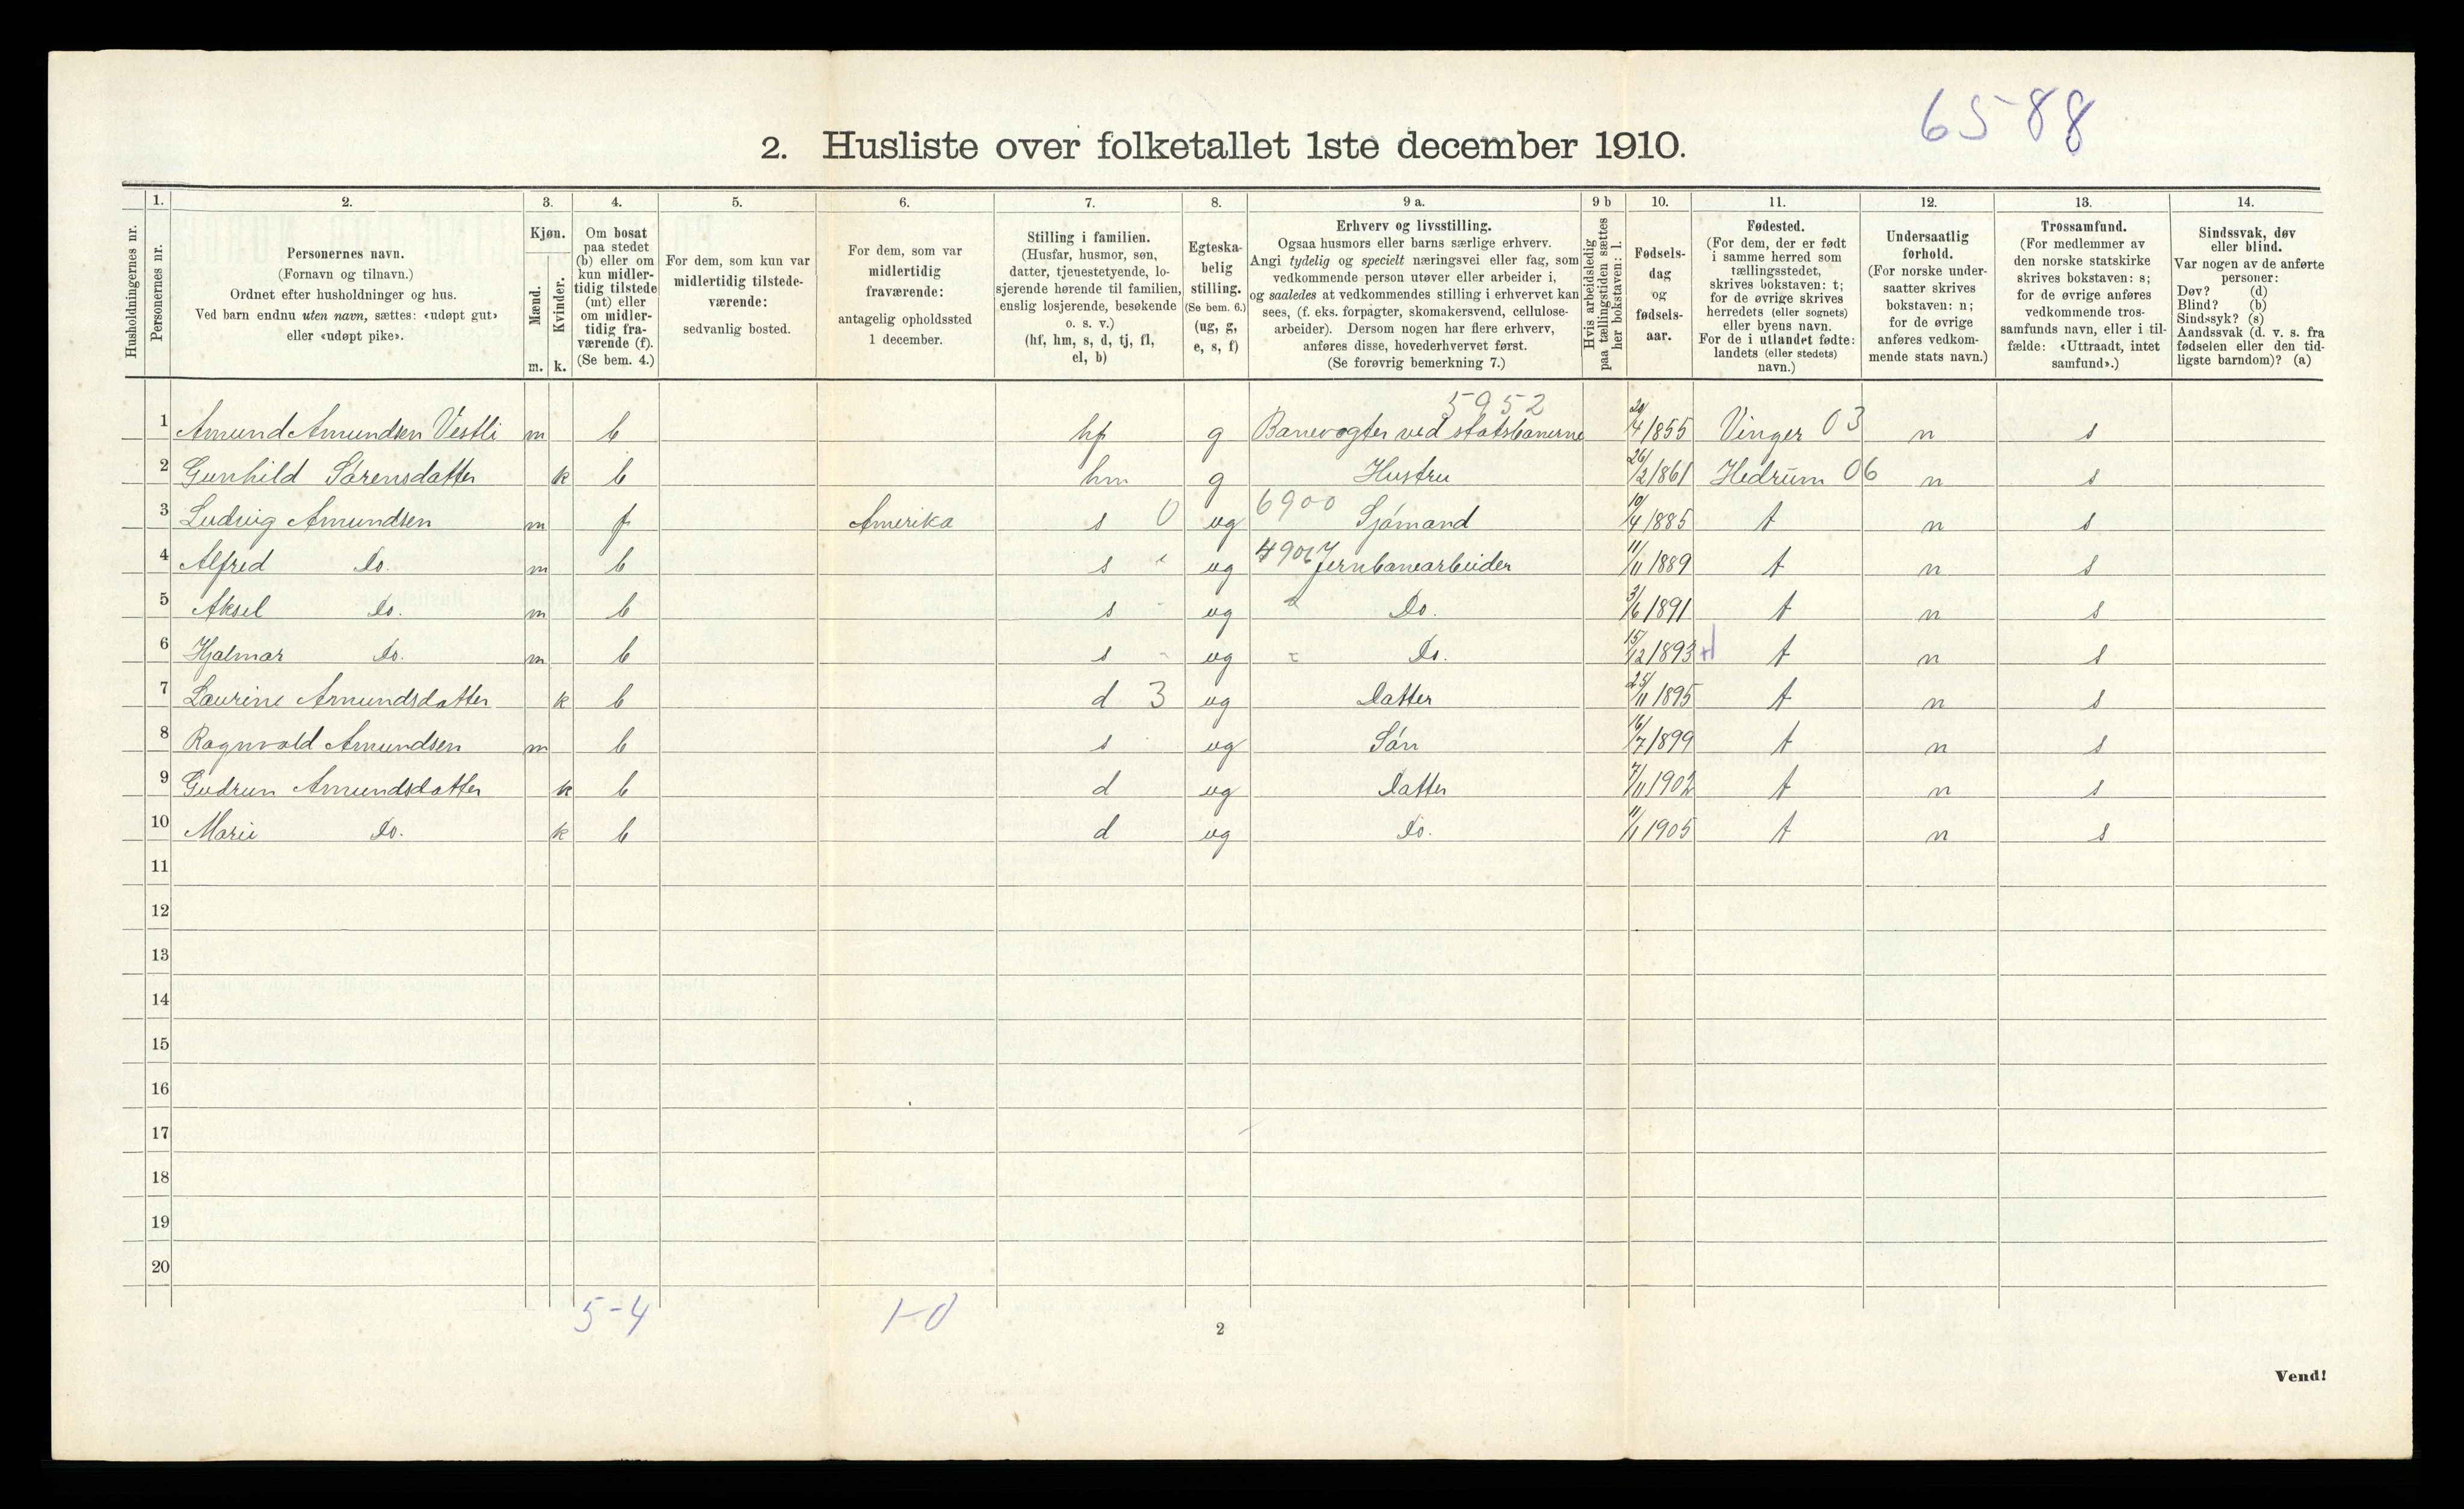 6588
2. Husliste over folketallet 1ste december 1910.
Husholdningernes nr.
1.
Personernes nr.
2.
Personernes navn.
(Fornavn og tilnavn.)
Ordnet efter husholdninger og hus.
Ved barn endnu uten navn, sættes: «udøpt gut»
eller «udøpt pike».
3.
Kjøn.
Mænd.
Kvinder.
m. k.
4.
Om bosat
paa stedet
(b) eller om
kun midler-
tidig tilstede
(mt) eller
om midler-
tidig fra-
værende (f).
(Se bem. 4.)
5.
For dem, som kun var
midlertidig tilstede-
værende:
sedvanlig bosted.
6.
For dem, som var
midlertidig
fraværende:
antagelig opholdssted
1 december.
7.
Stilling i familien.
(Husfar, husmor, søn,
datter, tjenestetyende, lo-
sjerende hørende til familien,
enslig losjerende, besøkende
o. s. v.)
(hf, hm, s, d, tj, fl,
el, b)
8.
Egteska-
belig
stilling.
(Se bem. 6.)
(ug, g,
e, s, f)
9 a.
Erhverv og livsstilling.
Ogsaa husmors eller barns særlige erhverv.
Angi tydelig og specielt næringsvei eller fag, som
vedkommende person utøver eller arbeider i,
og saaledes at vedkommendes stilling i erhvervet kan
sees, (f. eks. forpagter, skomakersvend, cellulose-
arbeider). Dersom nogen har flere erhverv,
anføres disse, hovederhvervet først.
(Se forøvrig bemerkning 7.)
9 b
Hvis arbeidsledig
paa tællingstiden sættes
her bokstaven: l.
10.
Fødsels-
dag
og
fødsels-
aar.
11.
Fødested.
(For dem, der er født
i samme herred som
tællingsstedet,
skrives bokstaven: t;
for de øvrige skrives
herredets (eller sognets)
eller byens navn.
For de i utlandet fødte:
landets (eller stedets)
navn.)
12.
Undersaatlig
forhold.
(For norske under-
saatter skrives
bokstaven: n;
for de øvrige
anføres vedkom-
mende stats navn.)
13.
Trossamfund.
(For medlemmer av
den norske statskirke
skrives bokstaven: s;
for de øvrige anføres
vedkommende tros-
samfunds navn, eller i til-
fælde: «Uttraadt, intet
samfund».)
14.
Sindssvak, døv
eller blind.
Var nogen av de anførte
personer:
Døv? (d)
Blind? (b)
Sindssyk? (s)
Aandssvak (d. v. s. fra
fødselen eller den tid-
ligste barndom)? (a)
5952
1 Amund Amundsen Vestli m b hf g Banevogter ved statsbanerne 20/4 1855 Vinger 03 n s
2 Gunhild Sørensdatter k b hm g Hustru 26/2 1861 Hedrum 06 n s
3 Ludvig Amundsen m f Amerika s 0 ug 6900 Sjømand 10/4 1885 t n s
4 Alfred Do. m b s ug Jernbanearbeider 11/11 1889 t n s
5 Aksel Do. m b s ug Do. 3/6 1891 t n s
6 Hjalmar Do. m b s ug Do. 15/12 1893 t n s
7 Laurine Amundsdatter k b d 3 ug Datter 25/11 1895 t n s
8 Ragnvald Amundsen m b s ug Søn 16/7 1899 t n s
9 Gudrun Amundsdatter k b d ug Datter 7/11 1902 t n s
10 Marie Do. k b d ug Do. 11/1 1905 t n s
11
12
13
14
15
16
17
18
19
20
5-4 1-0
2
Vend!